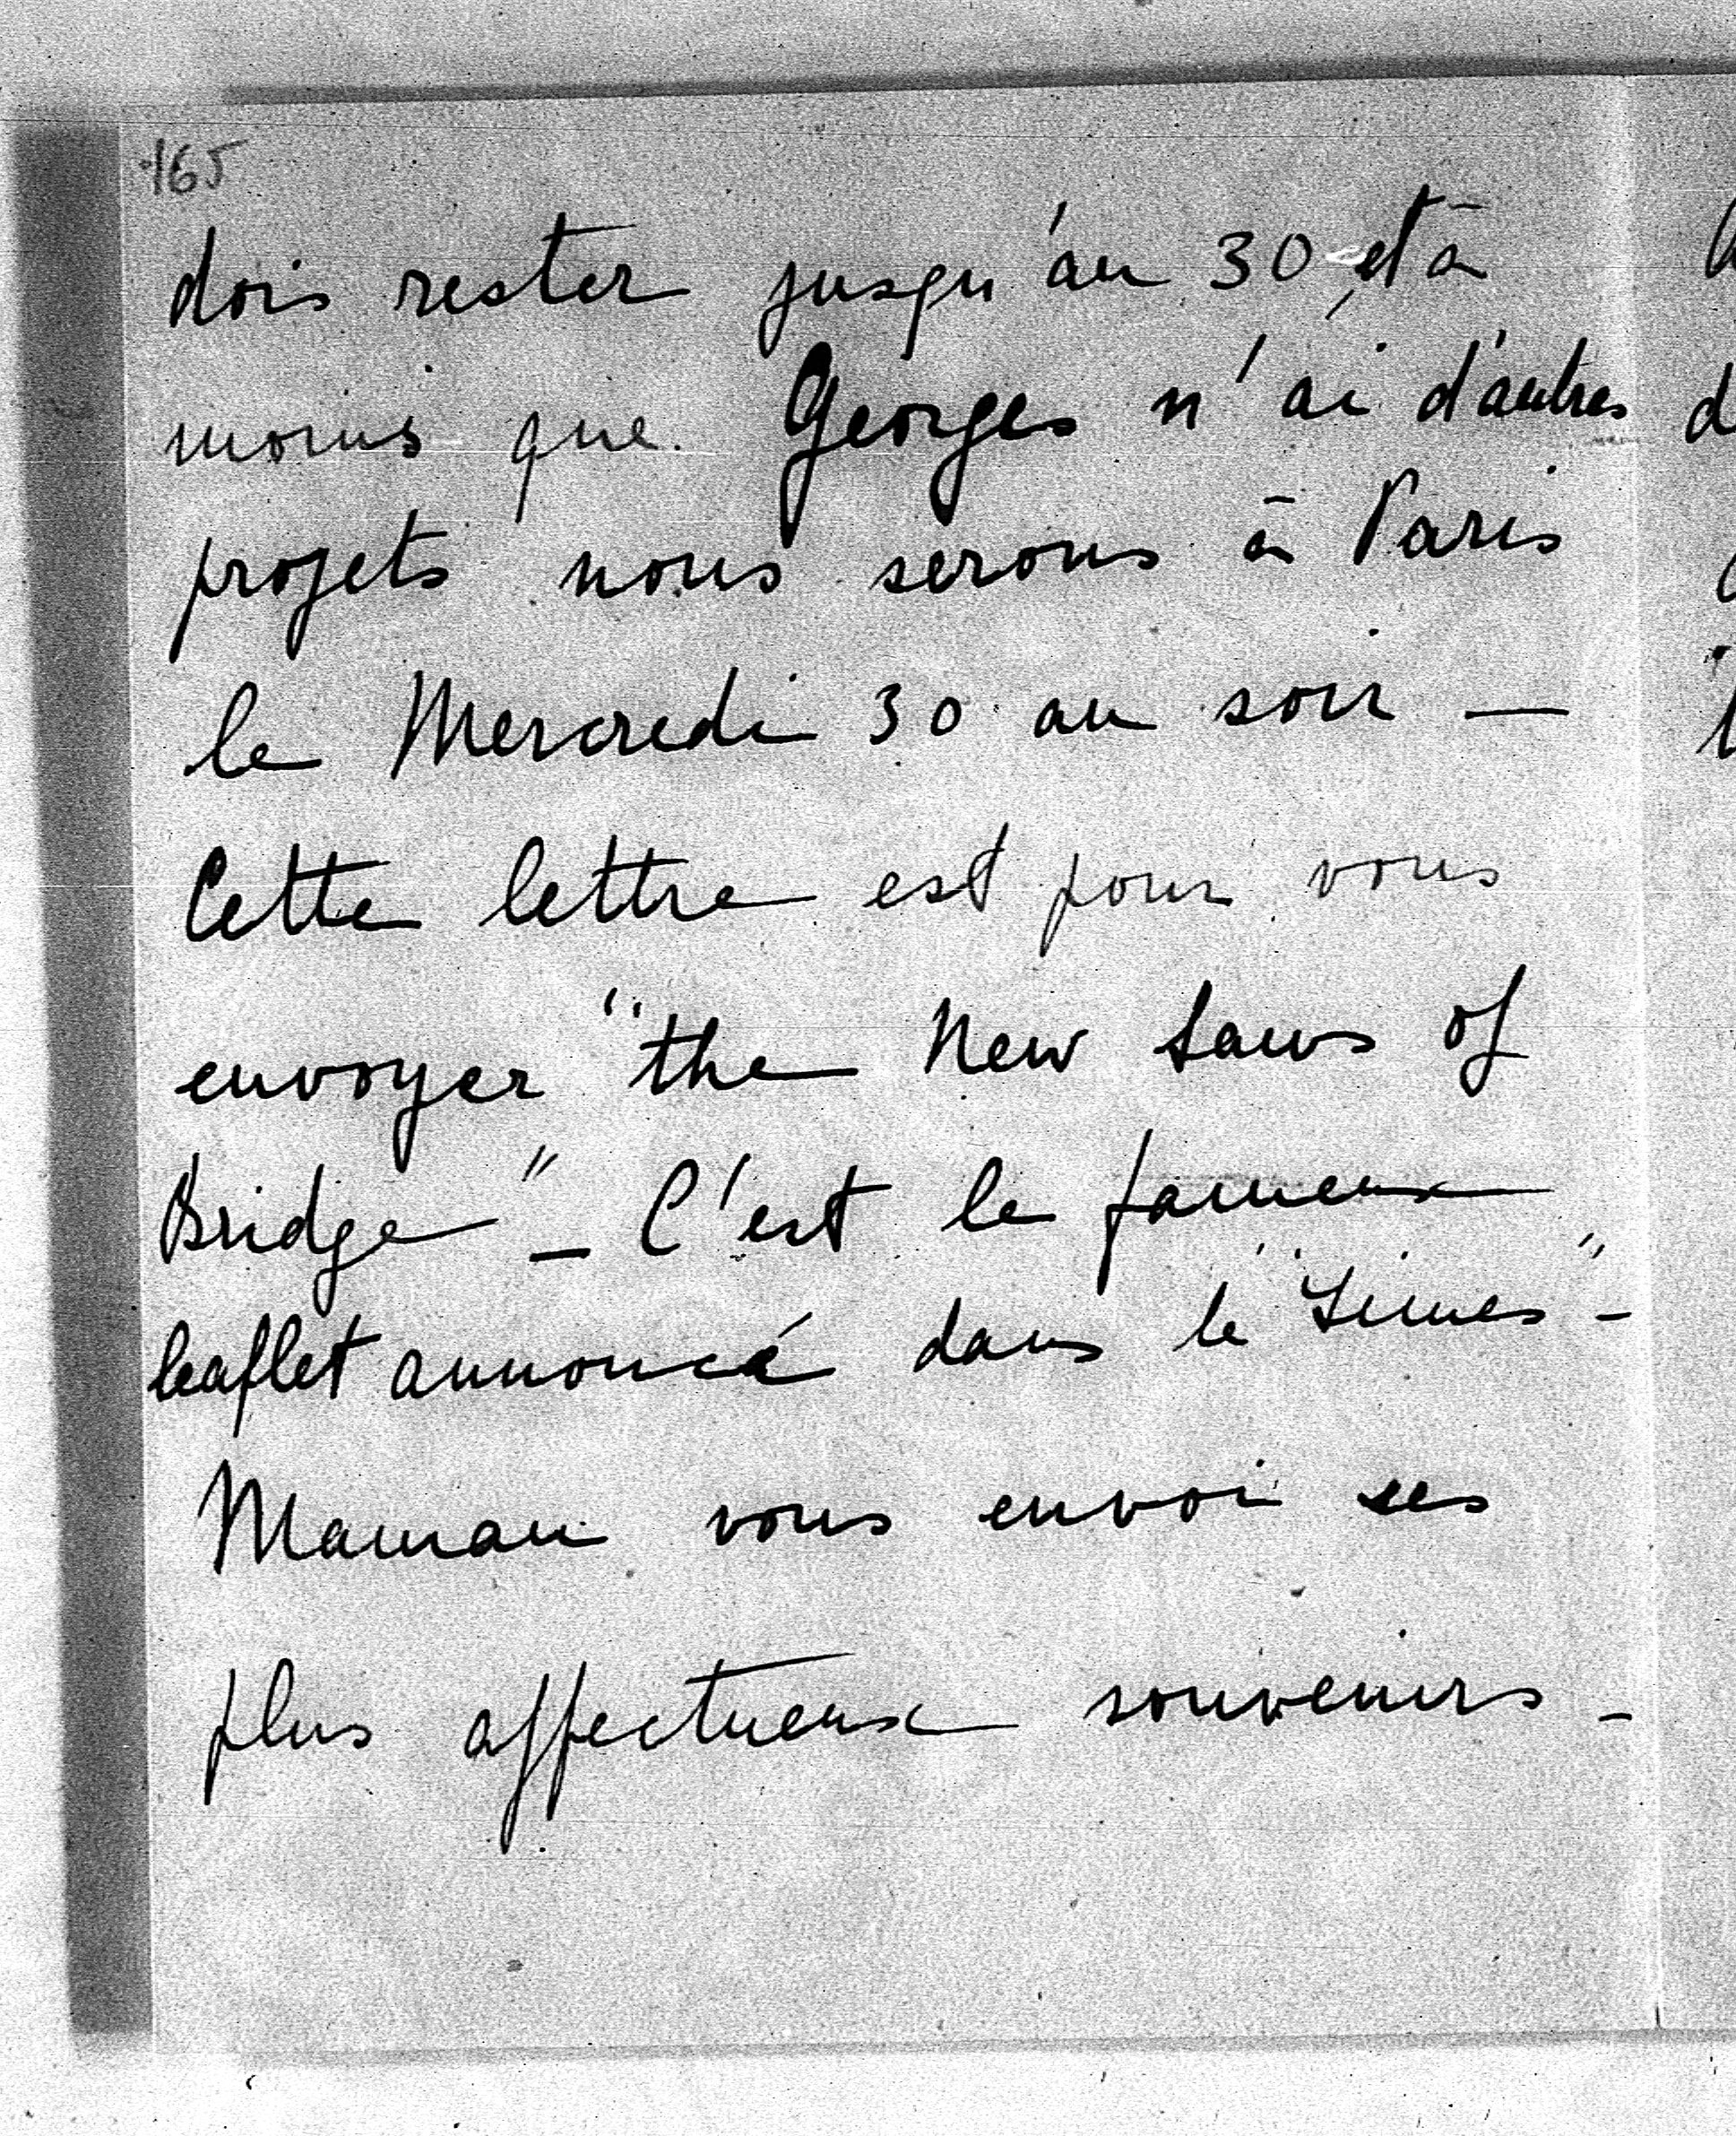 165
dois rester jusqu'au 30 et à
moins que Georges n'ai d'autres
projets nous serons à Paris
le Mercredi 30 au soir —
Cette lettre est pour vous
envoyer "the New Laws of
Bridge" – C'est le fameux
leaflet annoncé dans le "Times" –
Maman vous envoi ses
plus affectueux souvenirs –